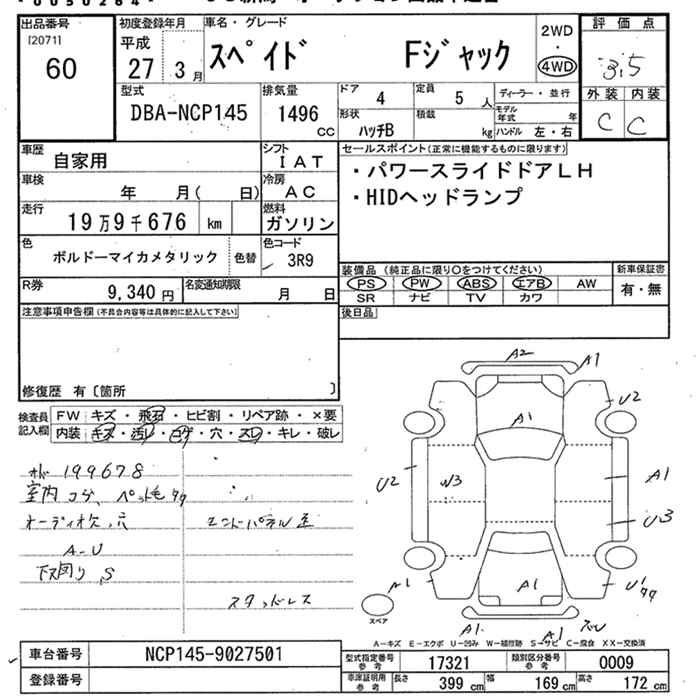 出品番号
[2071]
60
初度登録年月
平成
27 3月
車名・グレード
スペイド Fジャック
2WD
・
4WD
評価点
3.5
外装 内装
C C
型式
DBA-NCP145
排気量
1496
CC
ドア 4
定員 5人
ディーラー・並行
形状 ハッチB
積載 kg
モデル年式 年
ハンドル 左・右
車歴
自家用
シフト
IAT
車検
年 月( 日)
冷房
AC
走行
19万9千676 km
燃料
ガソリン
色
ボルドーマイカメタリック 色替
色コード
3R9
R券
9,340円
名変通知期限
月 日
セールスポイント(正常に機能するものに限ります)
・パワースライドドアLH
・HIDヘッドランプ
装備品(純正品に限り○をつけてください)
PS PW ABS エアB AW
SR ナビ TV カワ
新車保証書
有・無
後日品
注意事項申告欄(不具合内容等は具体的に記入して下さい)
修復歴 有〔箇所 〕
検査員記入欄
FW キズ・飛石・ヒビ割・リペア跡・×要
内装 キズ・汚レ・コゲ・穴・スレ・キレ・破レ
199678
室内コゲ、ペット毛
オーディオ欠、穴
エンドパネル歪
A-U
下回り S
スタッドレス
A2
A1
U2
A1
U2
W3
A1
U3
A1
A1
U1
スペア
A1
A1
A-キズ E-エクボ U-凹み W-補修跡 S-サビ C-腐食 XX-交換済
車台番号
NCP145-9027501
登録番号
型式指定番号参考
17321
類別区分番号参考
0009
車庫証明用参考
長さ 399 cm
幅 169 cm
高さ 172 cm